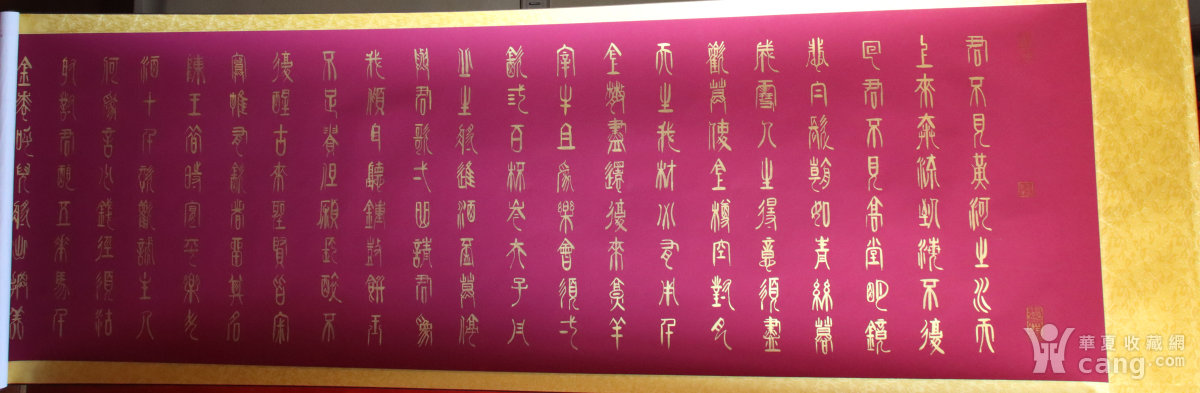 君不見黃河之水天
上來奔流到海不復
回君不見高堂明鏡
悲白髮朝如青絲暮
成雪人生得意須盡
歡莫使金樽空對月
天生我材必有用千
金散盡還復來烹羊
宰牛且為樂會須一
飲三百杯岑夫子丹
丘生將進酒盃莫停
與君歌一曲請君為
我傾耳聽鐘鼓饌玉
不足貴但願長醉不
復醒古來聖賢皆寂
寞唯有飲者留其名
陳王昔時宴平樂斗
酒十千恣歡謔主人
何為言少錢徑須沽
取對君酌五花馬千
金裘呼兒將出換美
華夏收藏網
cang.com